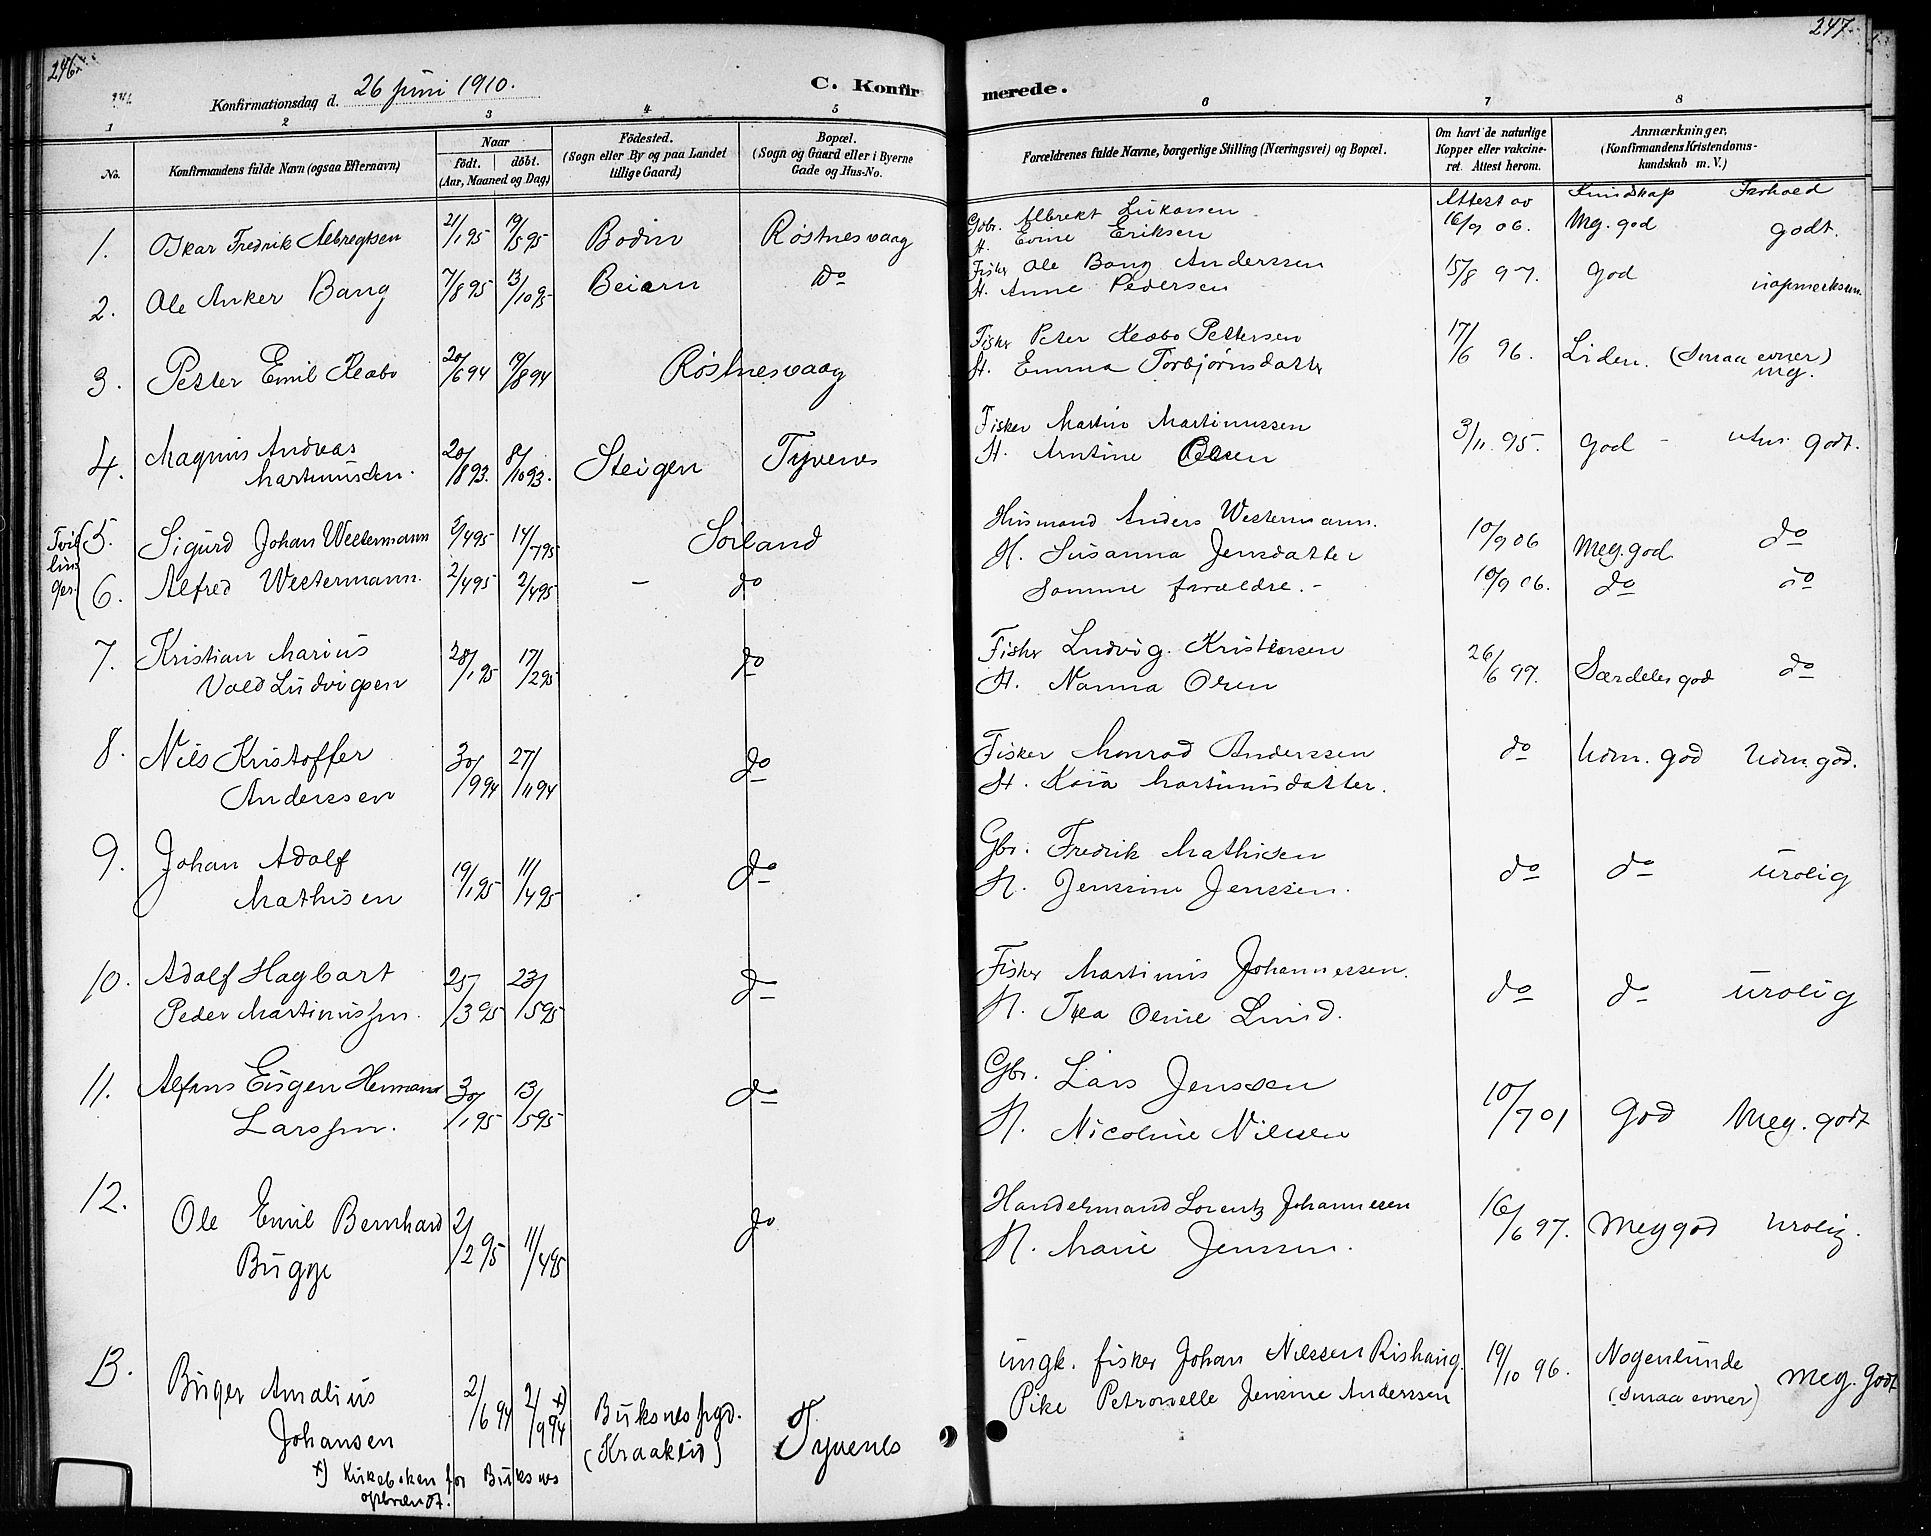 246.
247.
Konfirmationsdag d. 26 juni 1910.
C. Konfirmerede.
1 2 3 4 5 6 7 8
No.
Konfirmandens fulde Navn (ogsaa Efternavn)
Naar
födt. döbt.
(Aar, Maaned og Dag)
Födested.
(Sogn eller By og paa Landet
tillige Gaard)
Bopæl.
(Sogn og Gaard eller i Byerne
Gade og Hus-No.
Forældrenes fulde Navne, borgerlige Stilling (Næringsvei) og Bopæl.
Om havt de naturlige
Kopper eller vakcine-
ret. Attest herom.
Anmærkninger,
(Konfirmandens Kristendoms-
kundskab m. V.)
Attest av Kundskap Forhold
1. Oskar Fredrik Albregtsen 21/1 95 19/5 95 Bodin Røstnesvaag
Gbr. Albrekt Lukassen
H. Evine Eriksen
16/9 06. Meg. god godt.
2. Ole Anker Bang 7/8 95 13/10 95 Beiarn do
Fisker Ole Bang Anderssen
H. Anne Pedersen
15/8 97. God uopmerksom.
3. Petter Emil Kleabo 20/6 94 19/8 94 Røstnesvaag
Fisker Peter Kleabo Pettersen
H. Emma Torbjørnsdatter
17/6 96. Liden. (Smaa evner) mg.
4. Magnus Andreas
Martinussen. 20/8 93. 8/10 93. Steigen Tyvenes
Fisker Martin Martinussen
H. Arntine Olsen
3/11 95. God - godt.
Tvil
lin
ger.
5. Sigurd Johan Westermann 2/4 95 14/7 95 Sørland
Husmand Anders Westermann.
H. Susanna Jensdatter
10/9 06 Meg. god do
6. Alfred Westermann. 2/4 95 2/4 95 - do
Samme forældre. -
10/9 06. do do
7. Kristian Marius
Vold Ludvigsen 28/1 95 17/2 95 do
Fisker Ludvig Kristensen
H. Nanna Olsen
26/6 97. Særdeles god do
8. Nils Kristoffer
Anderssen 30/9 94 27/11 94 do
Fisker Monrad Anderssen
H. Kaia Martinusdatter.
do Udm. god Udm. god.
9. Johan Adolf
Mathisen 19/1 95 11/4 95 do
Gbr. Fredrik Mathisen
H. Jenssine Jenssen.
do do urolig
10. Adolf Hagbart
Peder Martinussen. 25/3 95 23/5 95 do
Fisker Martinus Johannessen.
H. Thea Oline Lund.
do do urolig
11. Alfons Eugen Hermann
Larssen. 30/1 95 13/5 95 do
Gbr. Lars Jenssen
H. Nicoline Nilssen
10/7 01 God Meg. godt
12. Ole Emil Bernhard
Bugge 2/2 95 11/4 95 do
Handelsmand Lorentz Johannesen
H. Marie Jenssen.
16/6 97. Meg god urolig.
13. Birger Amalius
Johansen 2/6 94 2/9 94 x) Buksnes prgd.
(Kraaklid) Tyvenes
ungk. fisker Johan Nilssen Rishaug.
Pike Petronelle Jensine Anderssen
19/10 96. Nogenlunde
(smaa evner) meg. Godt
x) Kirkeboken for Buksnes
opbrændt.